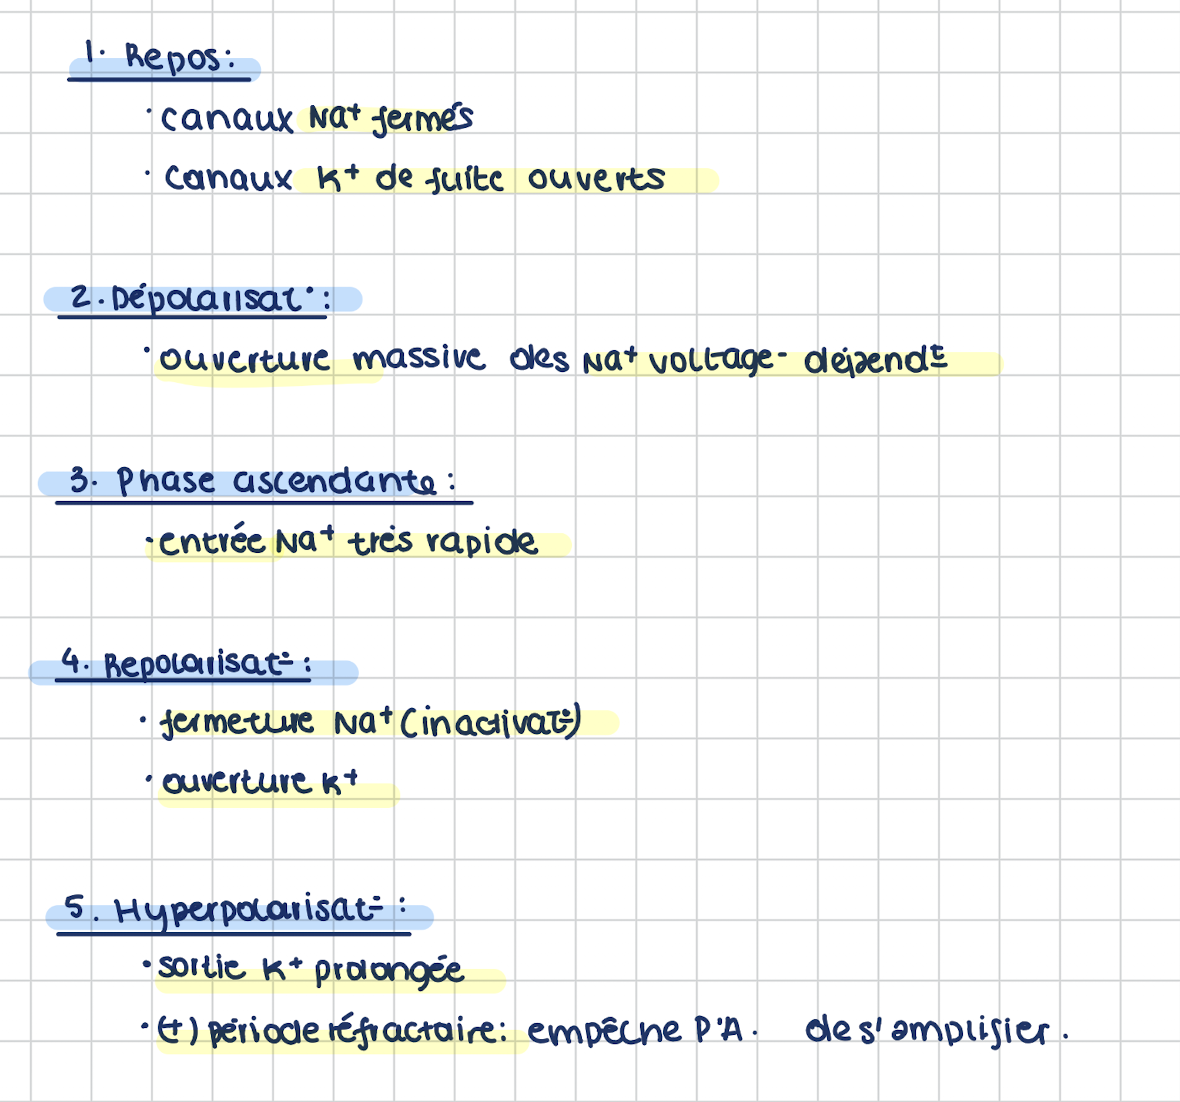 1. Repos :
· canaux Na+ fermés
· canaux K+ de fuite ouverts
2. Dépolarisat° :
· ouverture massive des Na+ voltage-dépendt
3. Phase ascendante :
· entrée Na+ très rapide
4. Repolarisat= :
· fermeture Na+ (inactivat=)
· ouverture K+
5. Hyperpolarisat= :
· sortie K+ prolongée
· (+) période réfractaire : empêche P'A. de s'amplifier.